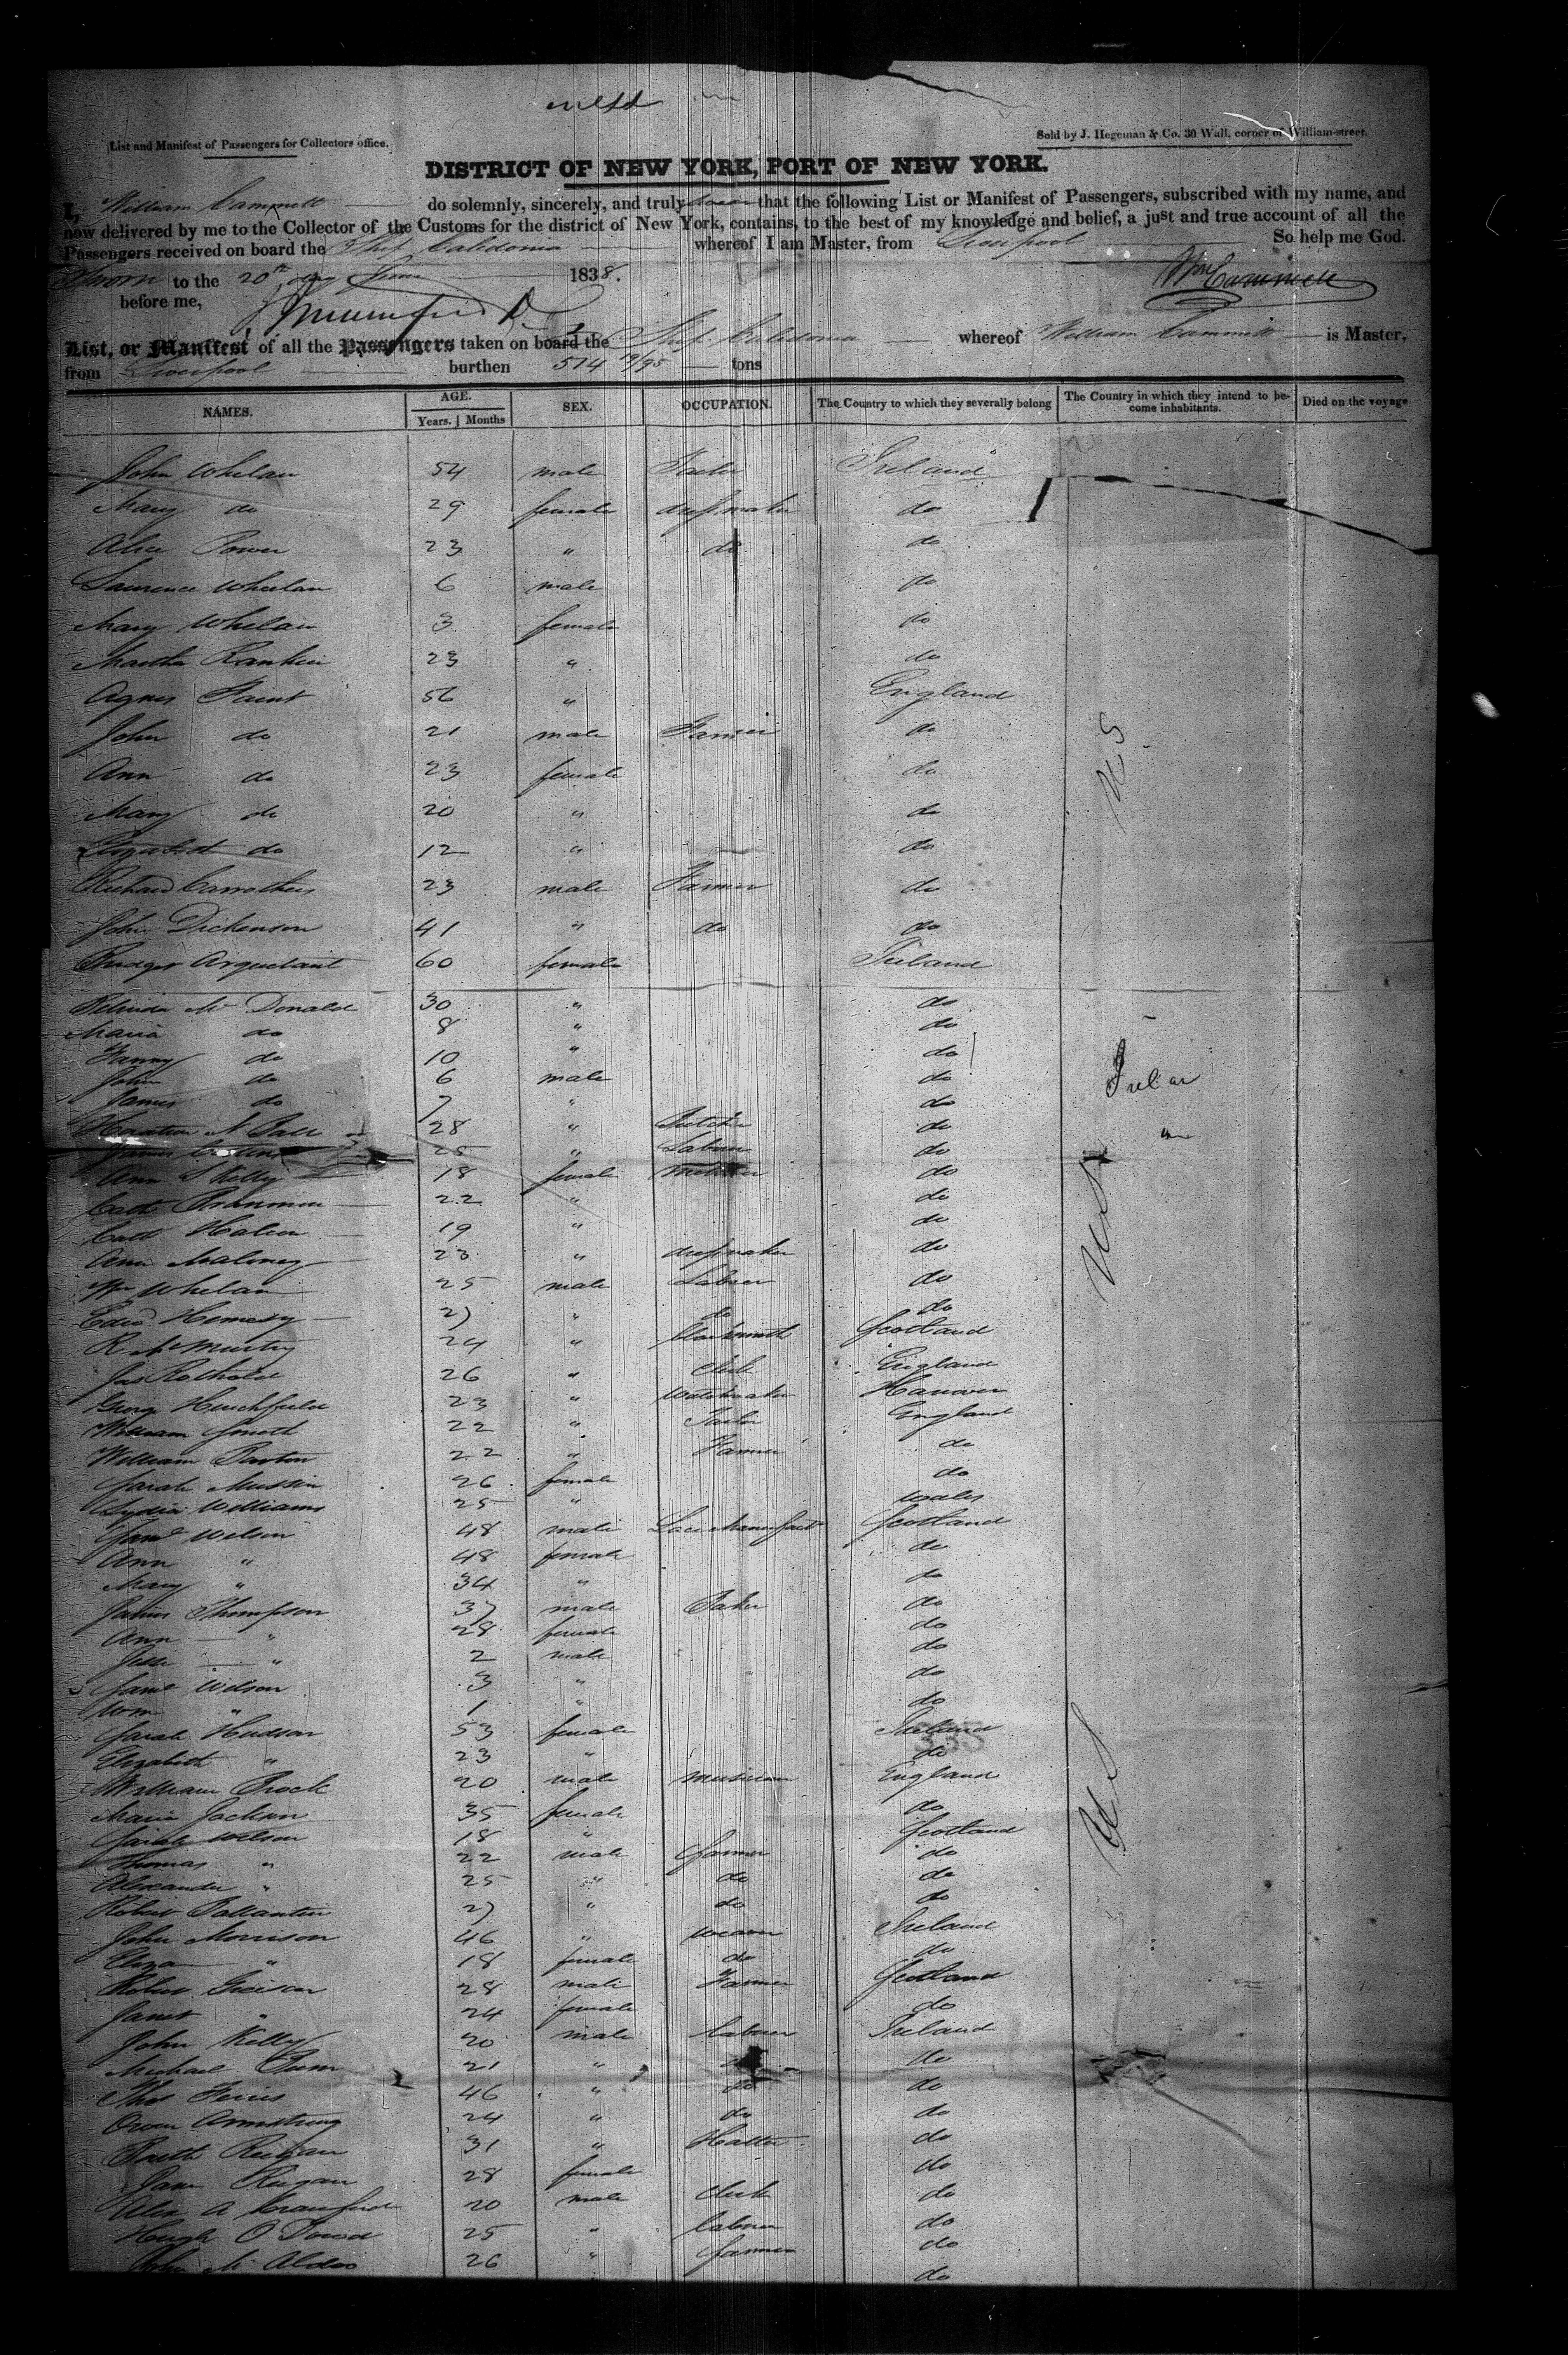 List and Manifest of Passengers for Collectors office.
Sold by J. Hegeman & Co. 30 Wall, corner of William-street.
DISTRICT OF NEW YORK, PORT OF NEW YORK.
I, William Cammett do solemnly, sincerely, and truly swear that the following List or Manifest of Passengers, subscribed with my name, and
now delivered by me to the Collector of the Customs for the district of New York, contains, to the best of my knowledge and belief, a just and true account of all the
Passengers received on board the Ship Caledonia whereof I am Master, from Liverpool So help me God.
Sworn to the 20th day June 1838.
Wm Cammett
before me,
List, or Manifest of all the Passengers taken on board the Ship Caledonia whereof William Cammett is Master,
from Liverpool burthen 514 19/95 tons
NAMES. AGE. SEX. OCCUPATION. The Country to which they severally belong The Country in which they intend to be- Died on the voyage
Years. Months come inhabitants.
John Whelan 54 male Ireland
Mary do 29 female dressmaker do
Alice Power 23 " do do
Laurence Wheelan 6 male do
Mary Whelan 3 female do
Martha Rankin 23 " do
Agnes Saint 56 " England
John do 21 male Farmer do
U S
Ann do 23 female do
Mary do 20 " do
Elizabeth do 12 " do
Richard Carrothers 23 male Farmer do
John Dickenson 41 " do do
60 female Ireland
Mc Donald 30 " do
Maria do 8 " do
Fanny do 10 " do
John do 6 male do
James do 7 " do
28 " do
James 25 " Labourer do
Ann Kelly 18 female do
Cath 22 " do
Cath 19 " do
Ann Maloney 23 " dressmaker do
U S
Wm Whelan 25 male Labourer do
Edwd 27 " do do
R McMurtry 24 " Blacksmith Scotland
Jas 26 " Clerk England
George Hirchfield 23 " Watchmaker Hanover
William Smith 22 " Tailor England
William 22 " Farmer do
Sarah 26 female do
Lydia Williams 25 " Wales
Saml Wilson 48 male Lace Manufact Scotland
Ann " 48 female do
Mary " 34 " do
James Thompson 37 male Baker do
Ann " 28 female do
" 2 male do
Saml Wilson 3 " do
Wm " 1 " do
Sarah Hudson 53 female Ireland
335
Elizabeth " 23 " do
William Brock 20 male musician England
Maria Jackson 35 female do
U S
Sarah Wilson 18 " Scotland
Thomas " 22 male farmer do
Alexander " 25 " do do
Robert Ballantine 27 " do do
John Morrison 46 " weaver Ireland
Eliza " 18 female do do
Robert Grierson 28 male Farmer Scotland
Janet " 24 female do
John Kelly 20 male labourer Ireland
Michael 21 " do
Thos 46 " do do
Owen Armstrong 24 " do do
31 " Hatter do
Jane 28 female do
Alex A Crawford 20 male Clerk do
Hugh O Dowd 25 " labourer do
John 26 " farmer do
do